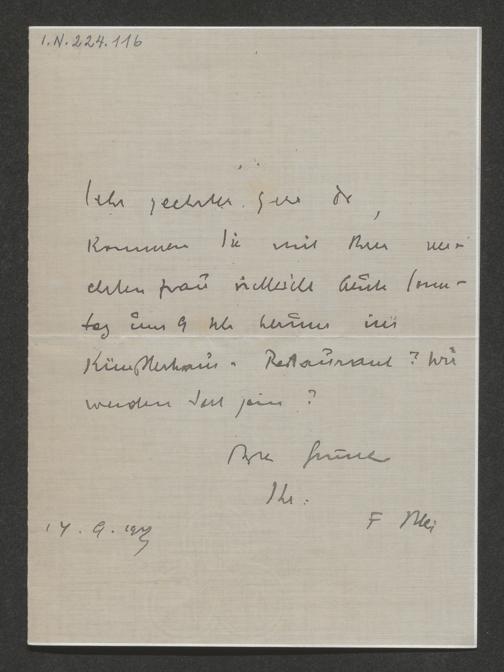 I.N. 224.116
Sehr geehrter Herr Dr,
kommen Sie mit Ihrer ver-
ehrten Frau vielleicht heute Sonn-
tag um 9 Uhr herum ins
Künstlerhaus-Restaurant? Wir
werden dort sein?
Grüsse
Ihr:
F Blei
14.9.